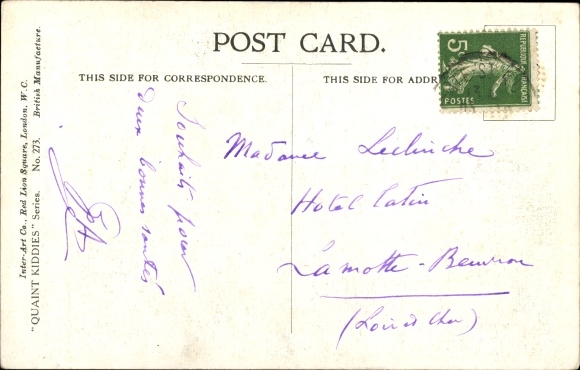 POST CARD.
THIS SIDE FOR CORRESPONDENCE.
THIS SIDE FOR ADDR
Inter-Art Co., Red Lion Square, London, W.C. British Manufacture.
"QUAINT KIDDIES" Series. No. 273.
Souhaits pour
deux bonnes santés
5c
REPUBLIQUE FRANÇAISE
POSTES
Madame Leclinche
Hotel Tatin
Lamotte-Beuvron
(Loir et Cher)